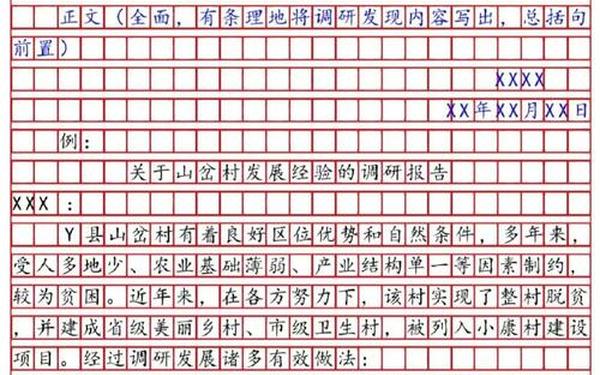 正文（全面，有条理地将调研发现内容写出，总括句
前置）
XXXX
XX年XX月XX日
例：
关于山岔村发展经验的调研报告
XXX：
Y县山岔村有着良好区位优势和自然条件，多年来，
受人多地少、农业基础薄弱、产业结构单一等因素制约，
较为贫困。近年来，在各方努力下，该村实现了整村脱贫
，并建成省级美丽乡村、市级卫生村，被列入小康村建设
项目。经过调研发展诸多有效做法：